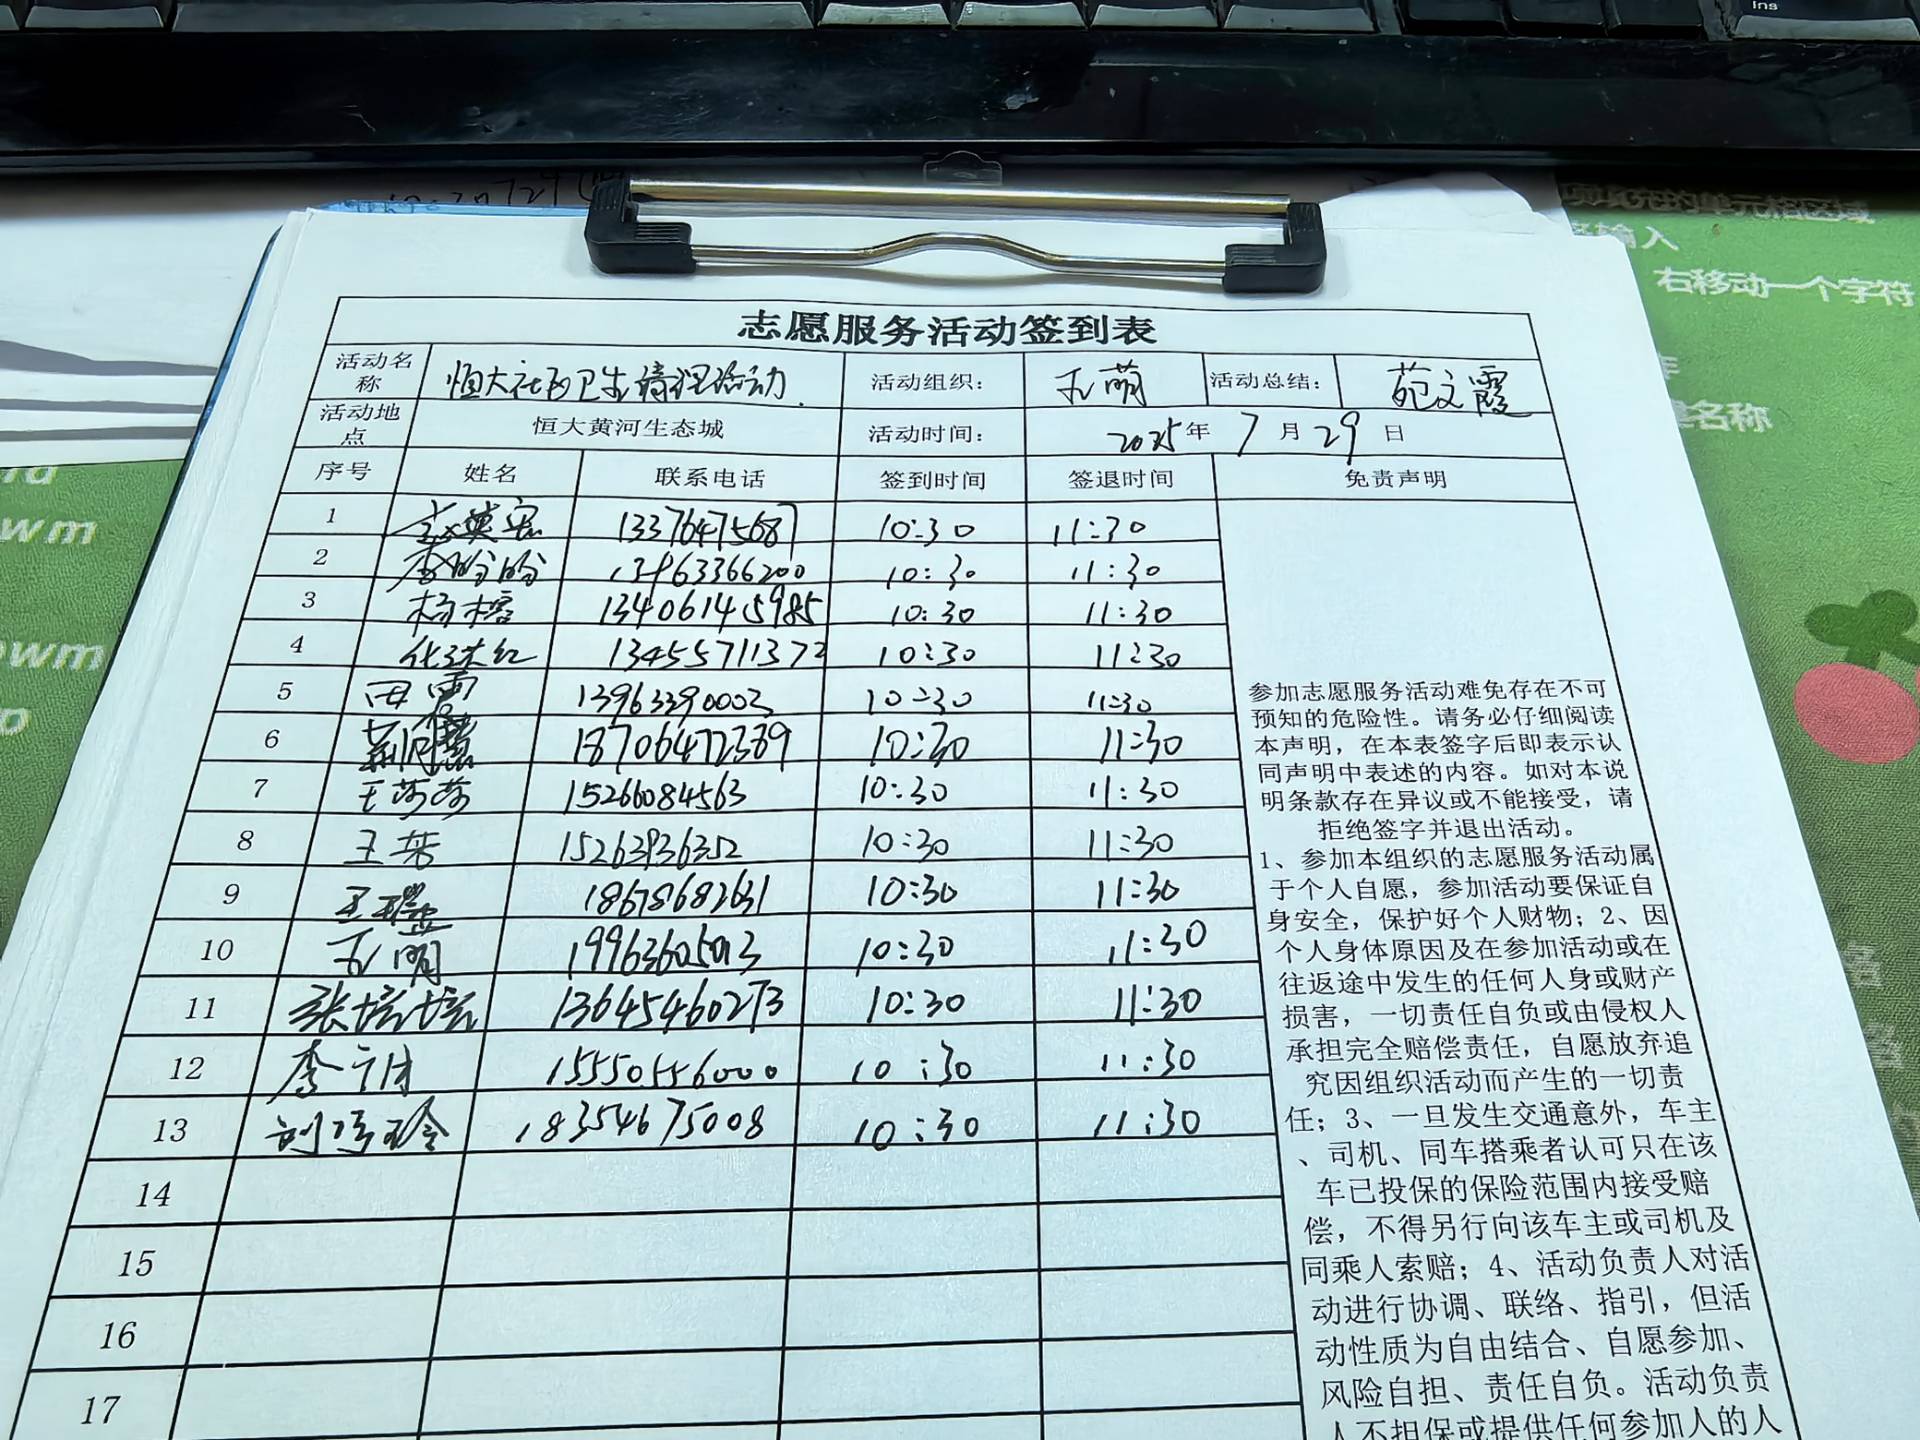 Ins
项填充的单元格区域
输入
右移动一个字符
名称
wm
owm
志愿服务活动签到表
活动名称 恒大社区卫生清理活动 活动组织： 王萌 活动总结： 苑文霞
活动地点 恒大黄河生态城 活动时间： 2025年7月29日
序号 姓名 联系电话 签到时间 签退时间 免责声明
1 13376475687 10:30 11:30
2 李盼盼 13963366200 10:30 11:30
3 杨榕 13406145985 10:30 11:30
4 13455711372 10:30 11:30
5 田雷 13963390003 10:30 11:30
6 18706472389 10:30 11:30
7 王莎莎 15266084563 10:30 11:30
8 王荣 15263936352 10:30 11:30
9 18678682631 10:30 11:30
10 王萌 19963605013 10:30 11:30
11 张培培 13645460273 10:30 11:30
12 李 15550556000 10:30 11:30
13 刘 玲 18354675008 10:30 11:30
14
15
16
17
参加志愿服务活动难免存在不可
预知的危险性。请务必仔细阅读
本声明，在本表签字后即表示认
同声明中表述的内容。如对本说
明条款存在异议或不能接受，请
拒绝签字并退出活动。
1、参加本组织的志愿服务活动属
于个人自愿，参加活动要保证自
身安全，保护好个人财物；2、因
个人身体原因及在参加活动或在
往返途中发生的任何人身或财产
损害，一切责任自负或由侵权人
承担完全赔偿责任，自愿放弃追
究因组织活动而产生的一切责
任；3、一旦发生交通意外，车主
、司机、同车搭乘者认可只在该
车已投保的保险范围内接受赔
偿，不得另行向该车主或司机及
同乘人索赔；4、活动负责人对活
动进行协调、联络、指引，但活
动性质为自由结合、自愿参加、
风险自担、责任自负。活动负责
人不担保或提供任何参加人的人